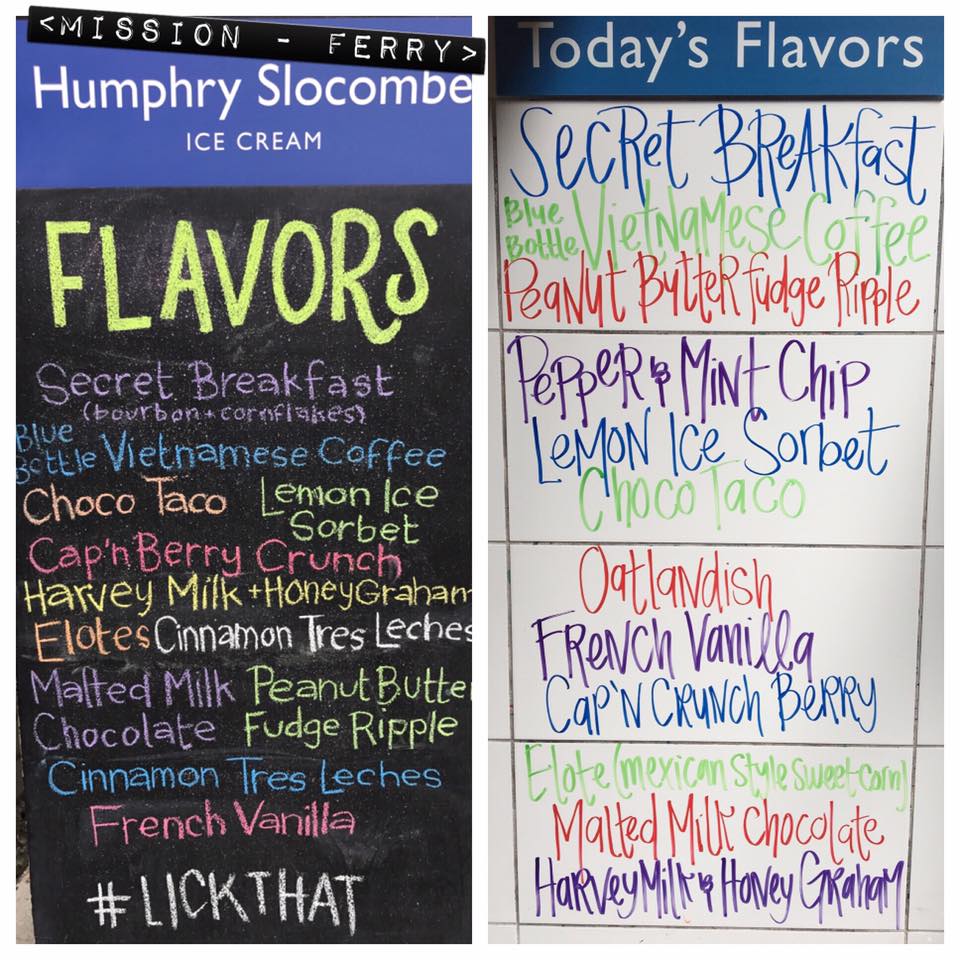 <MISSION - FERRY>
Humphry Slocombe
ICE CREAM
FLAVORS
Secret Breakfast
(bourbon + cornflakes)
Blue
Bottle Vietnamese Coffee
Choco Taco Lemon Ice
Sorbet
Cap'n Berry Crunch
Harvey Milk + Honey Graham
Elotes Cinnamon Tres Leches
Malted Milk Peanut Butte
Chocolate Fudge Ripple
Cinnamon Tres Leches
French Vanilla
#LICKTHAT
Today's Flavors
Secret Breakfast
Blue
Bottle Vietnamese Coffee
Peanut Butter Fudge Ripple
Pepper & Mint Chip
Lemon Ice Sorbet
Choco Taco
Oatlandish
French Vanilla
Cap'n Crunch Berry
Elote (mexican style sweet corn)
Malted Milk Chocolate
Harvey Milk & Honey Graham